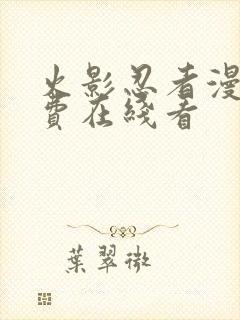 火影忍者漫
費在綫看
葉翠微